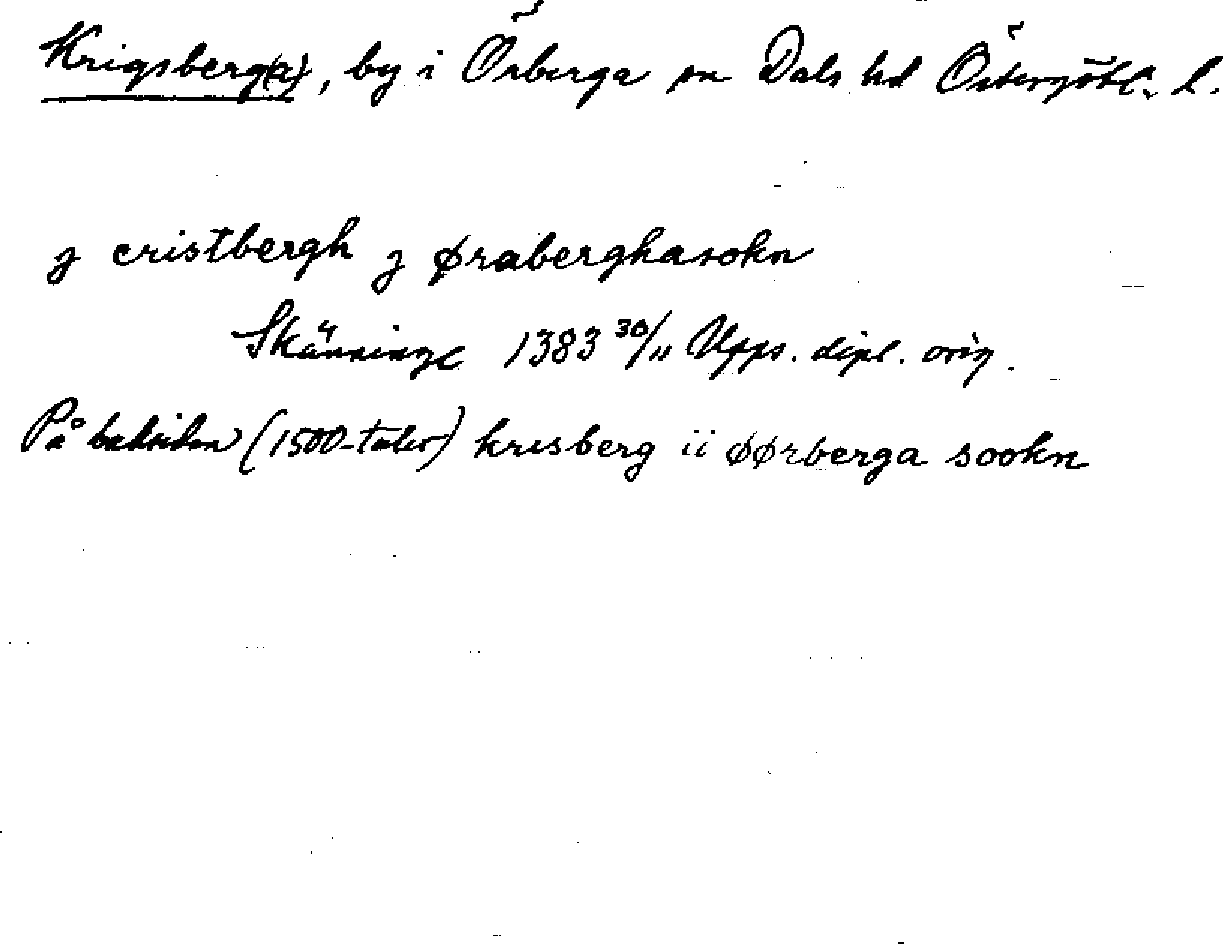 Krigsberg(a), by i Örberga sn Dals hd Östergötl. l.
j cristbergh j øraberghasokn
Skänninge 1383 30/11 Upps. dipl. orig.
På baksidan (1500-talet) krisberg ii øørberga sookn